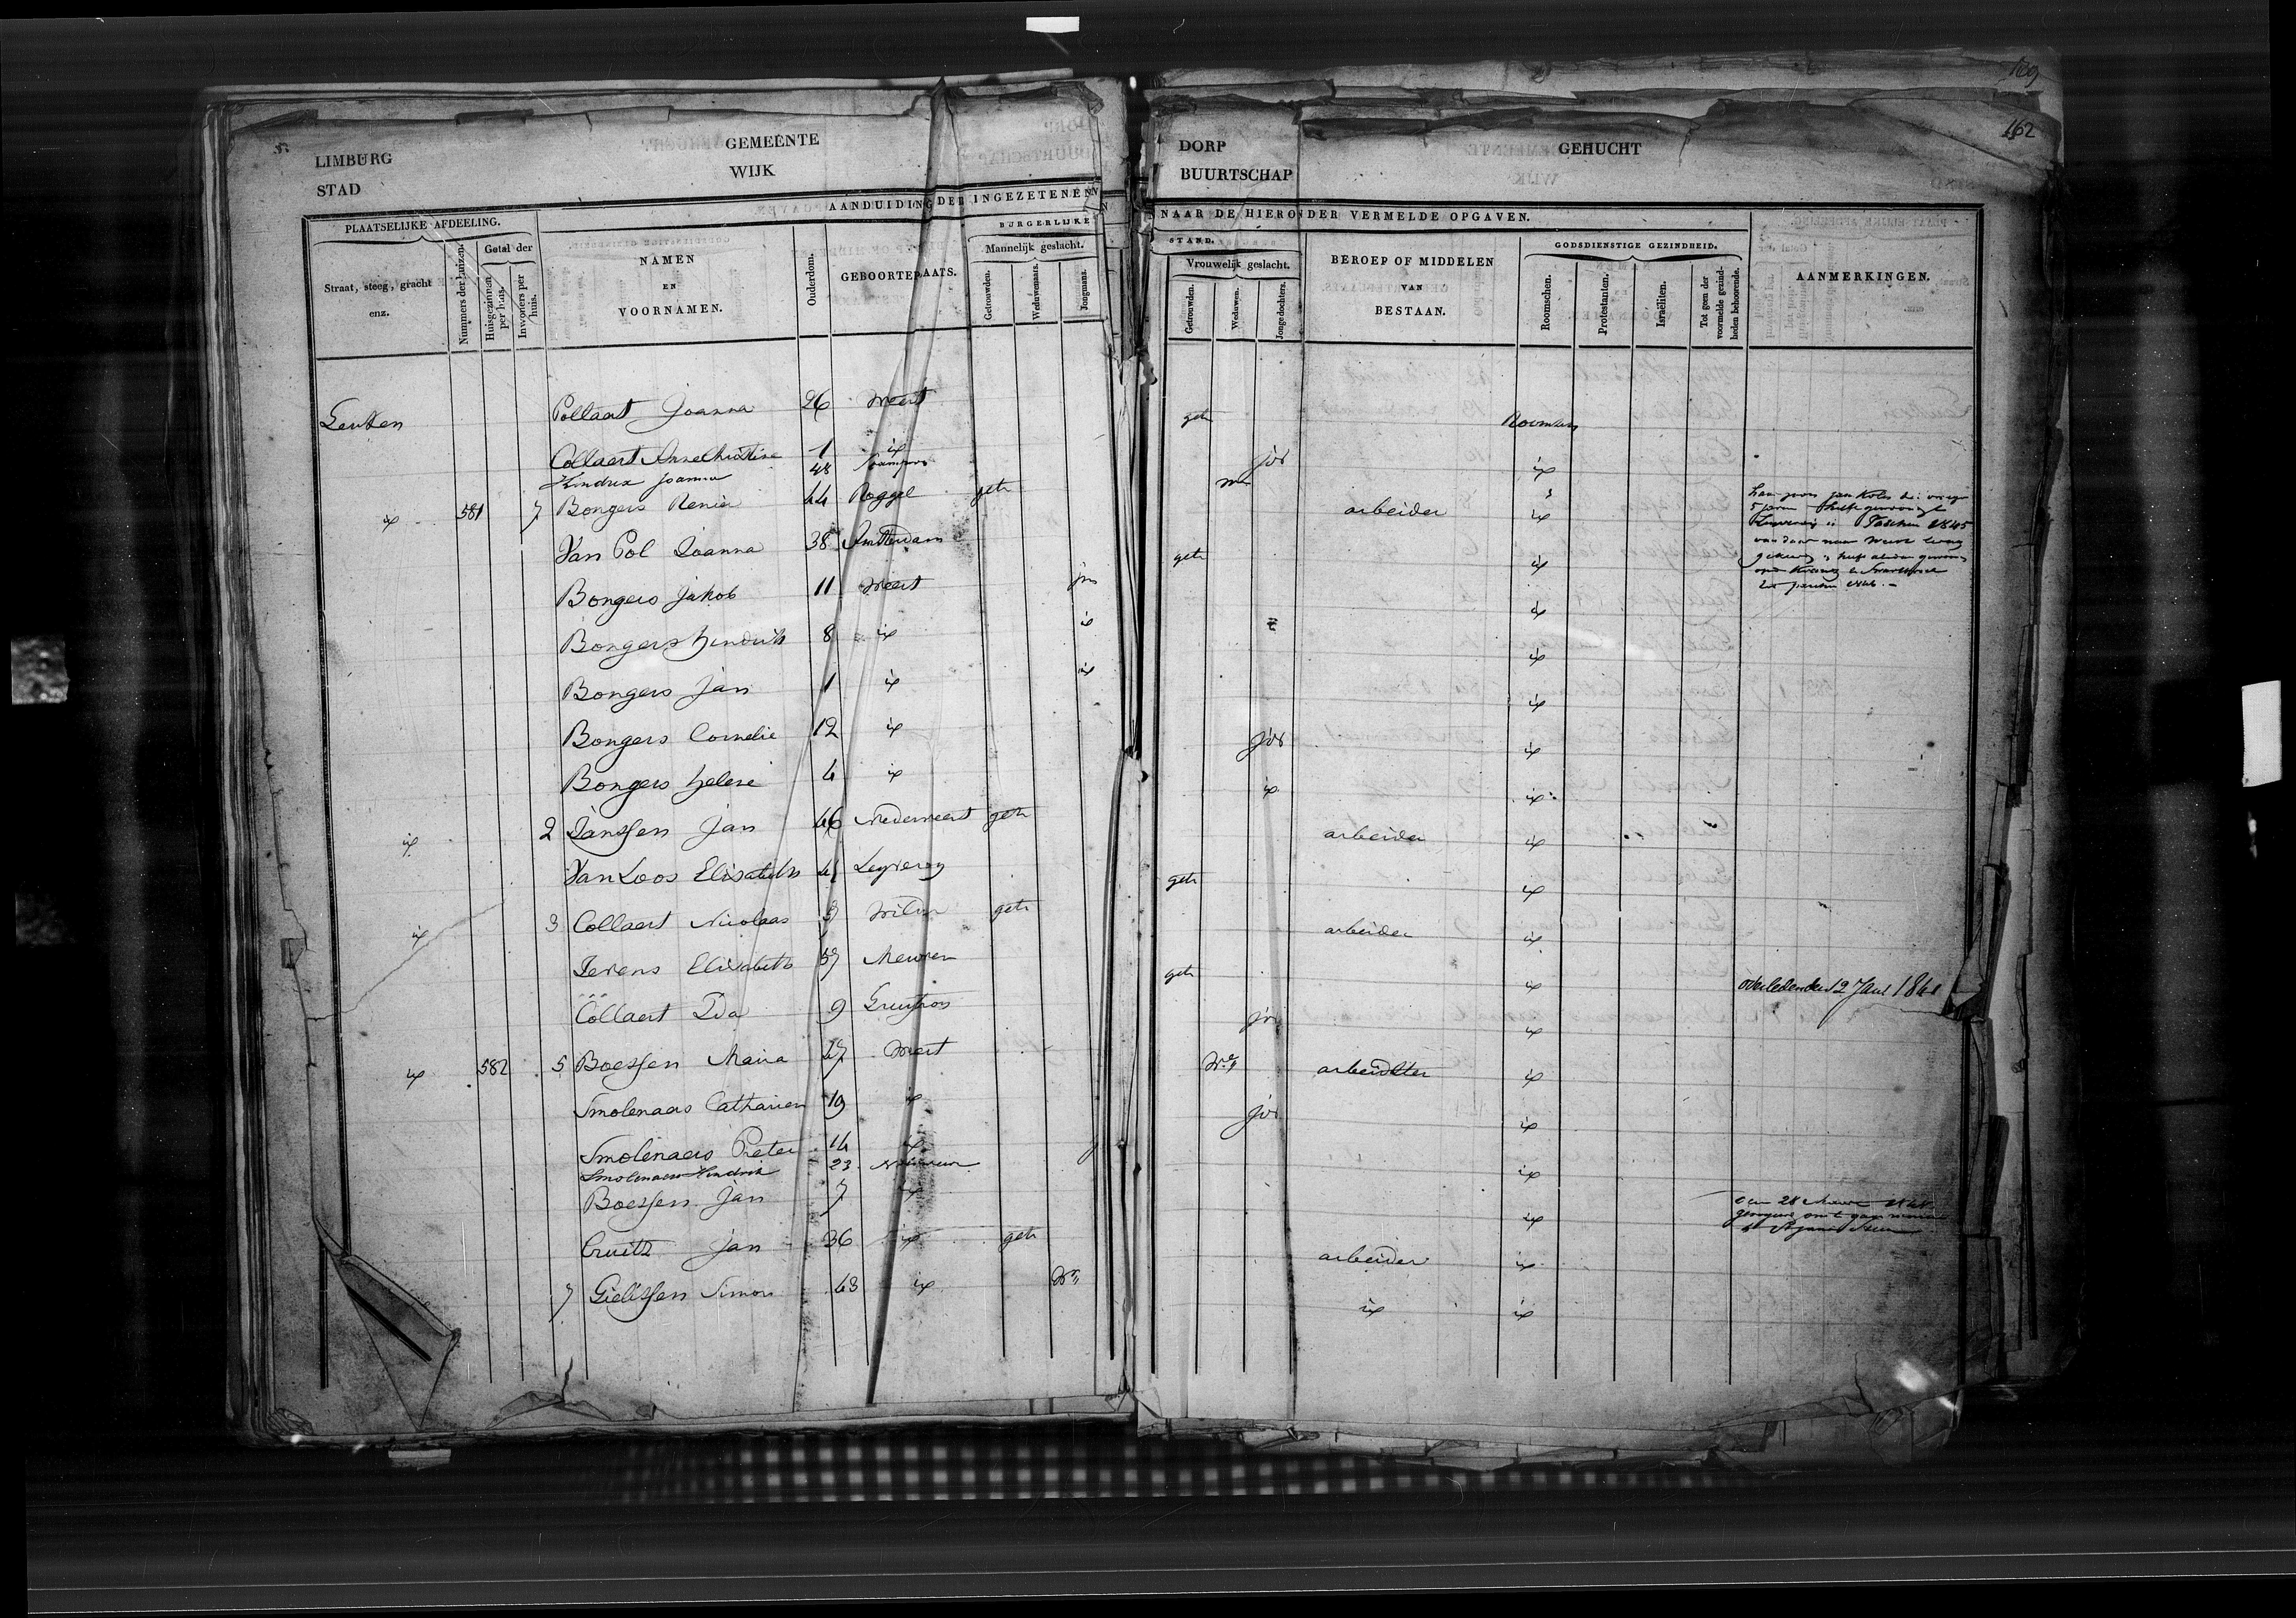 169
162
LIMBURG GEMEENTE
STAD WIJK
DORP GEHUCHT
BUURTSCHAP
AANDUIDING DER INGEZETENEN
NAAR DE HIERONDER VERMELDE OPGAVEN.
PLAATSELIJKE AFDEELING.
Straat, steeg, gracht enz.
Nummers der huizen.
Getal der
Huisgezinnen per huis.
Inwoners per huis.
NAMEN
EN
VOORNAMEN.
Ouderdom.
GEBOORTEPLAATS.
BURGERLIJKE
STAND.
Mannelijk geslacht.
Getrouwden.
Weduwenaars.
Jongmans.
Vrouwelijk geslacht.
Getrouwden.
Weduwen.
Jonge dochters.
BEROEP OF MIDDELEN
VAN
BESTAAN.
GODSDIENSTIGE GEZINDHEID.
Roomschen.
Protestanten.
Israëliten.
Tot geen der voormelde gezindheden behoorende.
AANMERKINGEN.
Leuken Pollaart Joanna 26 Weert getr
Collaert 1 ix jdr ix
Hindrix Joanna 48
ix 581 7 Bongers Renier 44 Roggel getr arbeider ix
Van Pol Joanna 38 Amsterdam getr ix
Bongers Jakob 11 Weert jm ix
Bongers Hendrik 8 ix ix ix
Bongers Jan 1 ix ix ix
Bongers Cornelie 12 ix jdr ix
Bongers Helene 4 ix ix ix
ix 2 Janssen Jan 46 Nederweert getr arbeider ix
Van Loos Elisabeth 41 getr ix
ix 3 Collaert Nicolaas getr arbeider ix
Elisabeth 37 getr ix overleden den 12 Jan 1841
Collaert Ida 9 ix
ix 582 5 Boessen Maria 47 Weert We arbeidster ix
Smolenaers Catharien 19 ix jdr ix
Smolenaers Pieter 14 ix ix
Smolenaers Hendrik 23
Boessen Jan 7 ix ix
Cruitz Jan 36 ix getr arbeider ix
7 Gielissen Simon 43 ix Wr ix ix